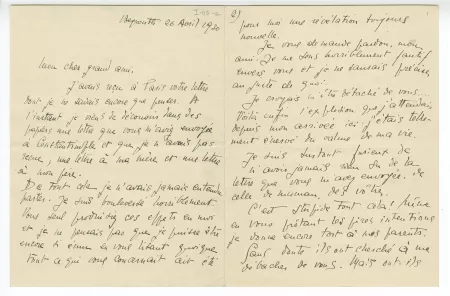 Beyrouth 26 Avril 1930
Mon cher grand ami.
J'avais reçu à Paris votre lettre
dont je ne savais encore que penser. A
l'instant je viens de découvrir dans des
papiers une lettre que vous m'aviez envoyée
à Constantinople et que je n'avais pas
reçue, une lettre à ma mère et une lettre
à mon père.
De tout cela je n'avais jamais entendu
parler. Je suis bouleversé horriblement.
Vous seul produisez ces effets en moi
et je ne pensais pas que je puisse être
encore si ému en vous lisant quoique
tout ce qui vous concernait ait été
2)
pour moi une révélation toujours
nouvelle.
Je vous demande pardon, mon
ami. Je me sens horriblement fautif
envers vous et je ne saurais préciser
au juste de quoi.
Je croyais m'être détaché de vous...
Voilà enfin l'explosion que j'attendais
depuis mon arrivée ici j'étais telle-
ment énervé du calme de ma vie.
Je suis surtout furieux de
n'avoir jamais rien su de la
lettre que vous m'avez envoyée. de
celle de maman, des vôtres.
C'est stupide tout cela! Même
en vous prêtant les pires intentions
je donne encore tort à mes parents.
Sans doute ils ont cherché à me
détacher de vous. Mais ont-ils